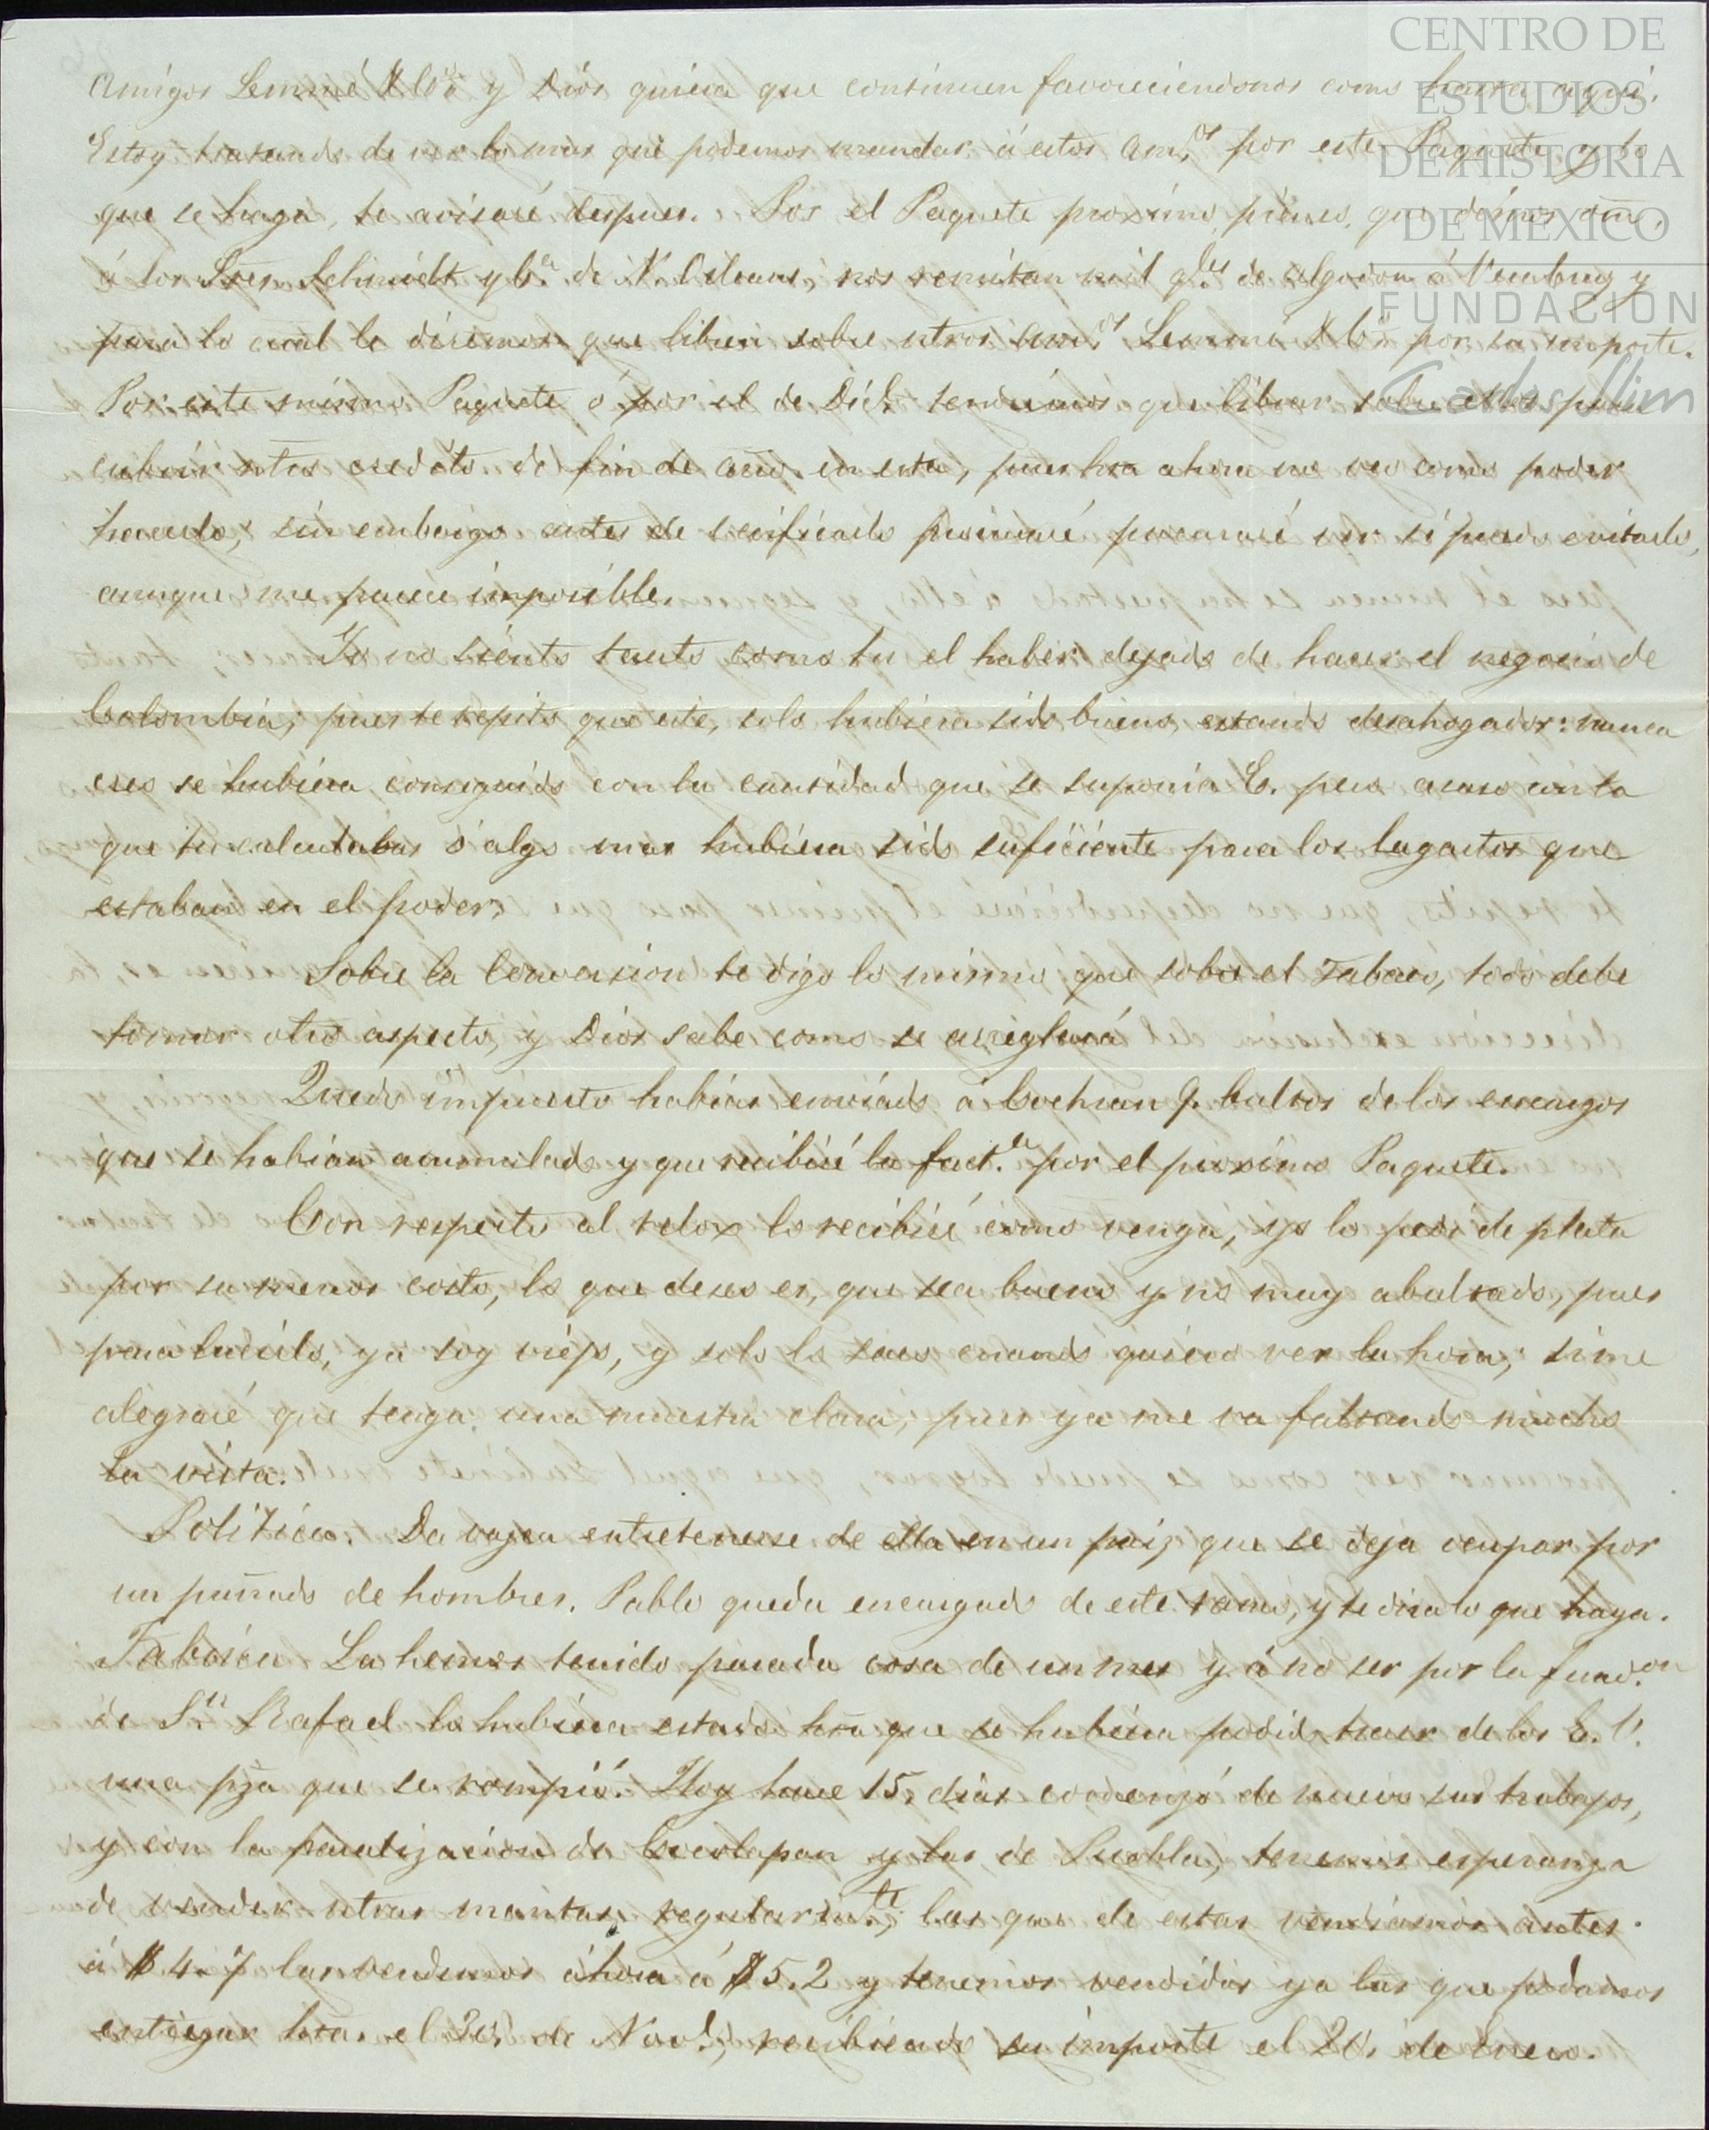 CENTRO DE
ESTUDIOS
DE HISTORIA
DE MEXICO
FUNDACIÓN
Carlos Slim
Amigos Lemmé & Cª y Diós quiera que continuen favoreciendonos como hasta aqui.
Estoy tratando de ver lo mas que podemos mandar á estos am.os por este Paquete, y lo
que se haga te avisaré despues. Por el Paquete proxímo piénso que demos orn.
á los Sres. Schmidt y Cª. de N. Orleans, nos remitan mil q.les de algodon á Veracruz y
para lo cual le dirémos que libren sobre ntros am.os Lemmé & Cª por su importe.
Por este mismo Paquete ó por el de Dic.e tendrémos que librar sobre ellos para
cubrir ntros credítos de fin de año en esta, pues hta ahora no veo como poder
hacerlo, sin embargo antes de verificarlo procuraré ver si puedo evitarlo,
aunque me parece imposible.
Yo no siento tanto como tu el haber dejado de hacer el negocio de
Colombia; pues te repito que este, solo hubiera sido bueno estando desahogados: nunca
eso se hubiera conseguido con la cantidad que se suponia E. pero acaso con la
que tu calculabas ó algo mas hubiera sido suficiénte para los lagartos que
estaban en el poder.
Sobre la Conversion te digo lo mismo que sobre el Tabaco, todo debe
tomar otro aspecto, y Diós sabe como se arreglará
Quedo impuesto habias enviado á Cochran 9. bultos de los encargos
que se habian acumulado y que recibiré la fact.ra por el proxímo Paquete.
Con respecto al relox lo recibiré como venga, yo lo pedi de plata
por su menor costo, lo que deseo es, que sea bueno y no muy abultado, pues
para lucirlo, ya soy viéjo, y solo lo saco cuando quiero ver la hora; si me
alegraré que tenga una muestra clara, pues ya me va faltando mucho
la vista.
Politica. Da vaguen entretenerse de ella en un paiz que se deja ocupar por
un puñado de hombres. Pablo queda encargado de este ramo, y te dirá lo que haya.
Fabrica La hemos tenido parada cosa de un mes y á no ser por la fund.on
de S.n Rafael lo hubiera estado hta que se hubiera podido traer de los E. U.
una pza que se rompió. Hoy hace 15, dias comenzó de nuevo sus trabajos,
y con la paralizacion de Cocolapan y las de Puebla, tenemos esperanza
de vender ntras mantas regularm.te; las que de estas vendiamos antes
á $4.7 las vendemos ahora á $5.2 y tenemos vendidas ya las que podamos
entregar hta. el 30, de Nov.e, recibiendo su importe el 20, de Enero.